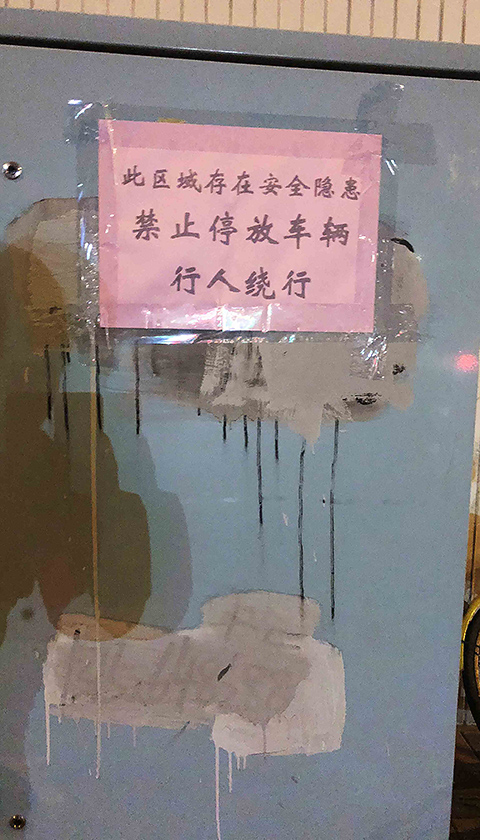 此区域存在安全隐患
禁止停放车辆
行人绕行